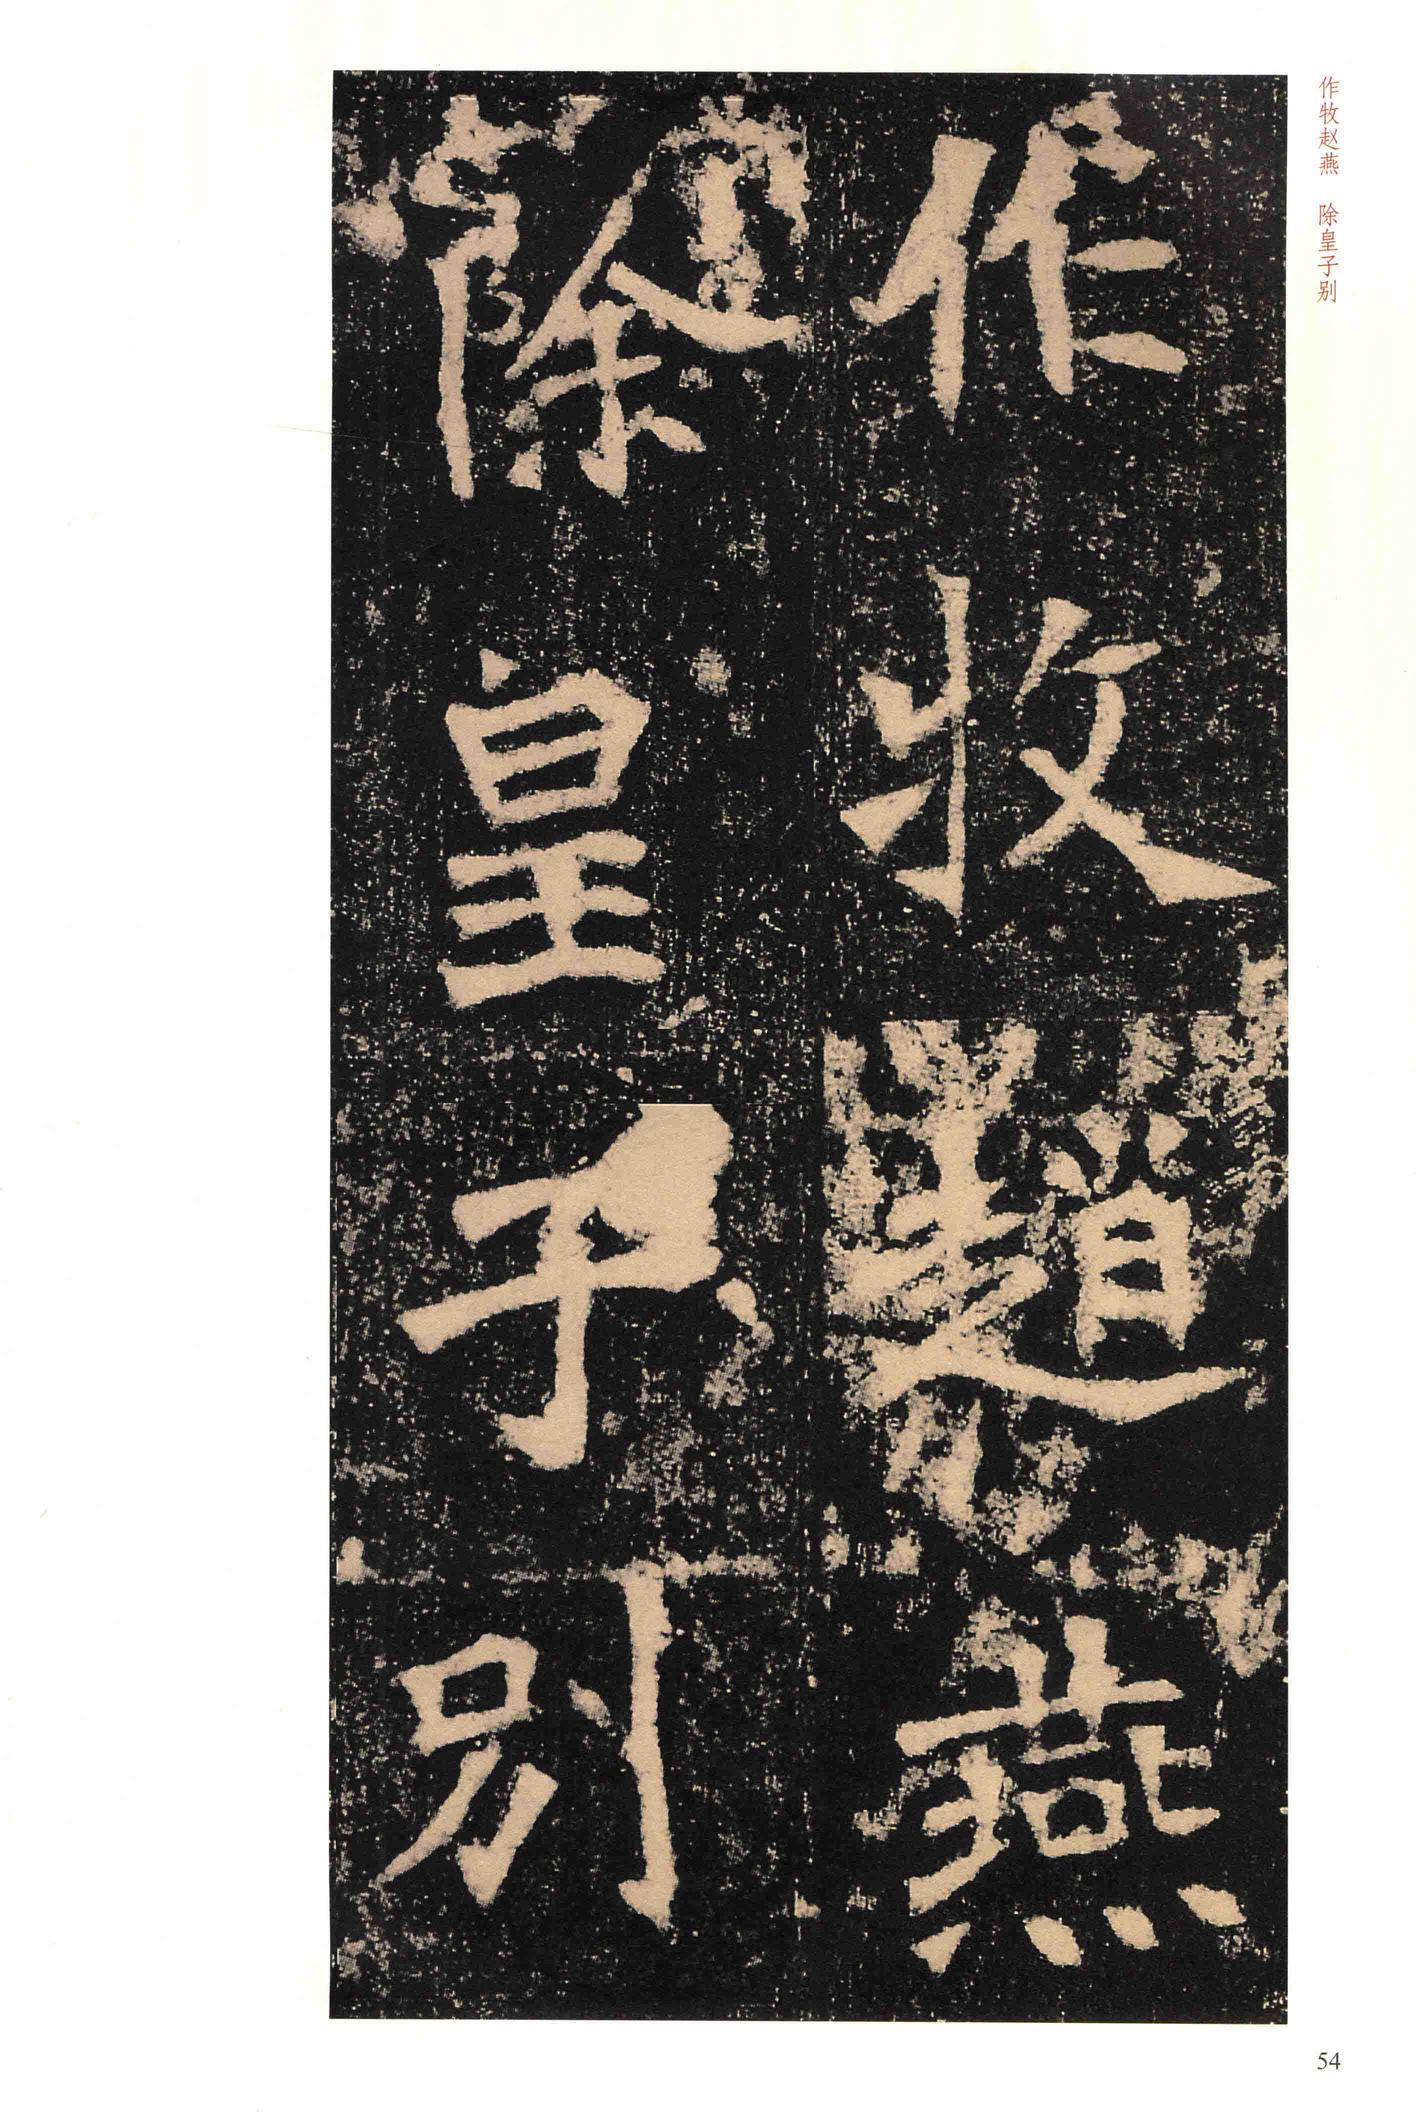 作牧趙燕
除皇子別
作牧赵燕　除皇子别
54